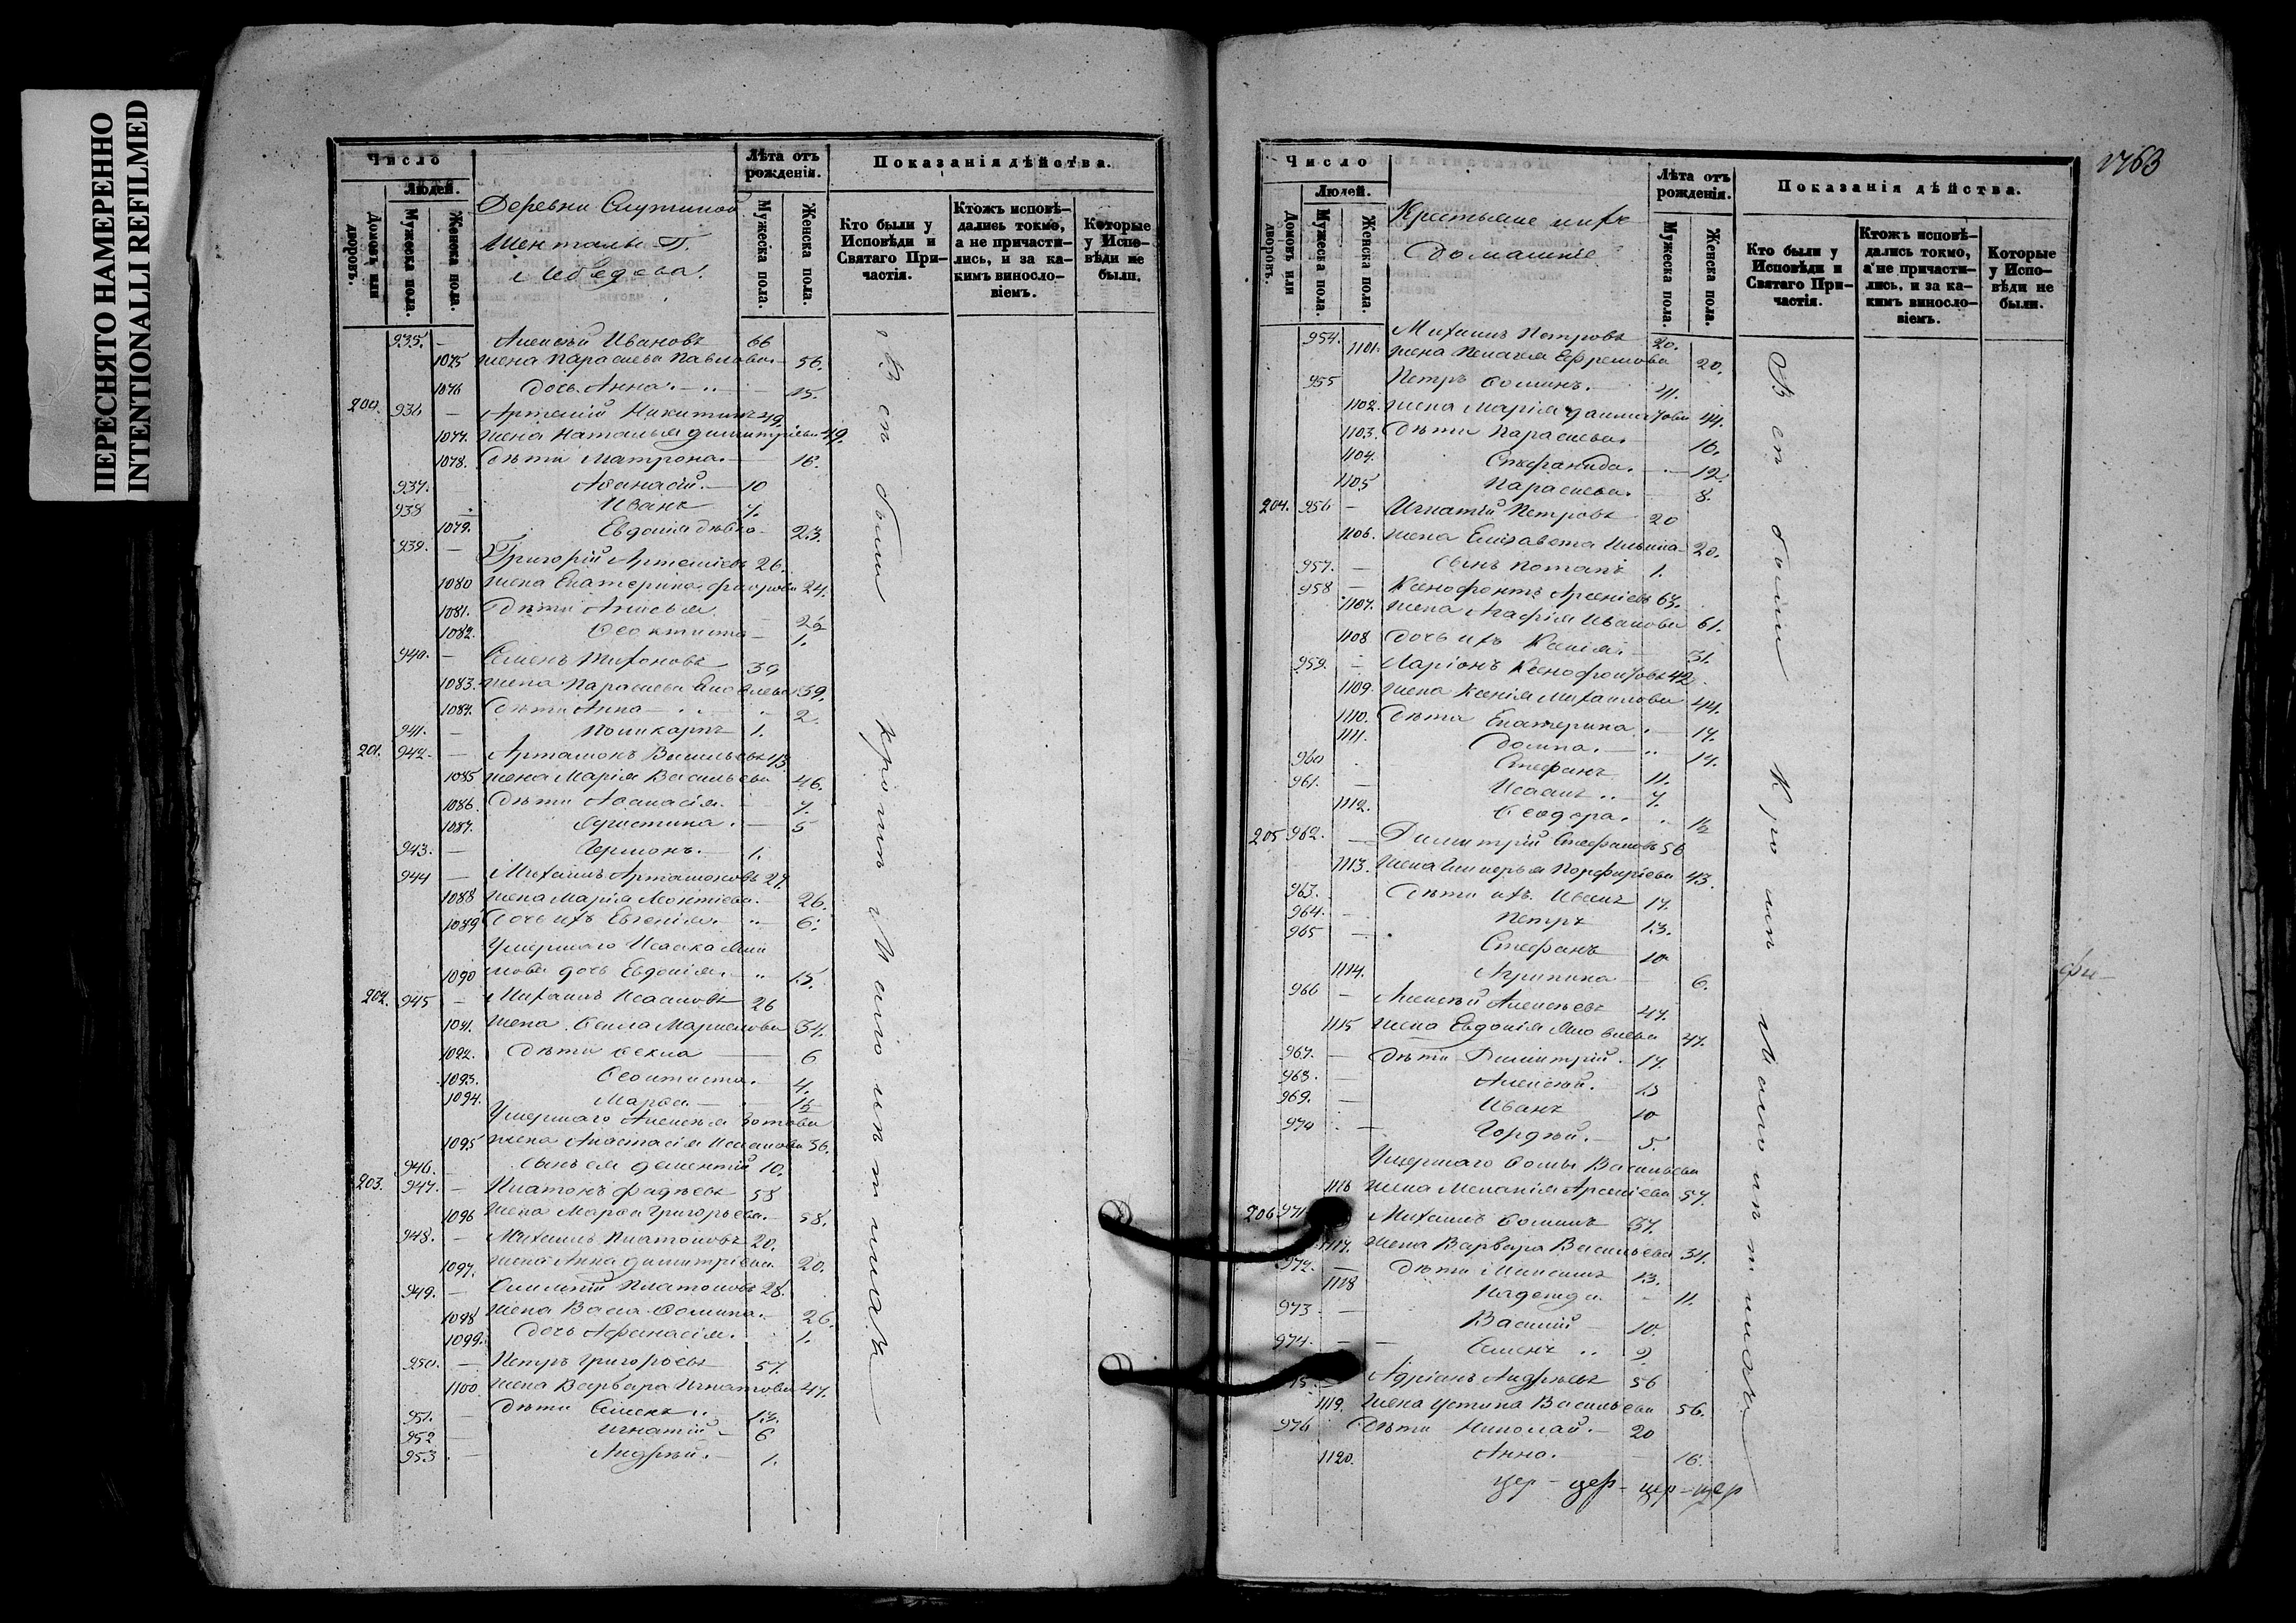 ПЕРЕСНЯТО НАМЕРЕННО
INTENTIONALLI REFILMED
Число
Людей.
Домовъ или дворовъ.
Мужеска пола.
Женска пола.
Деревни
Шенталы П.
Лебедева.
Лѣта отъ рожденія.
Мужеска пола.
Женска пола.
Показанія дѣйства.
Кто были у Исповѣди и Святаго При-частія.
Ктожъ исповѣ-дались токмо, а не причасти-лись, и за ка-кимъ винosло-віемъ.
Которые у Испо-вѣди не были.
935. — Алексѣй Ивановъ 66
1075 жена Параскева Павлова — 56.
1076 дочь Анна — 15.
200. 936 — Артемій Никитинъ 49.
1077. жена Наталья Димитріева 49.
1078. Дѣти Матрона. — 16.
937. Аѳанасій. — 10
938 Иванъ 7.
1079. Евдокія дѣвка 23.
939. — Григорій Артеміевъ 26.
1080 жена Екатерина Ѳедорова 24.
1081. Дѣти
1082. Ѳеоктиста — 1.
940. — Семенъ Тихоновъ 39
1083. жена Параскева Яковлева 39.
1084. Дѣти Анна — 2.
941. — Поликарпъ 1.
201. 942. — Артамонъ Васильевъ 43
1085 жена Марія Васильева 46.
1086. Дѣти Аѳанасія. 7.
1087. 5
943. — 1.
944 — Михаилъ Артамоновъ 27.
1088 жена Марія Леонтіева. 26.
1089 Дочь ихъ Евгенія. 6.
Умершаго Исаака
1090 дочь Евдокія. 15.
202. 945 — Михаилъ Исааковъ 26
1091. жена Ѳекла 34.
1092. Дѣти Ѳекла — 6
1093. Ѳеоктиста. 4.
1094. Марѳа. — 1½
Умершаго Алексѣя Зотова
1095 жена Анастасія Исаакова 36.
946. — сынъ ея Дементій 10.
203. 947. — Платонъ Фадѣевъ 58
1096 жена Марѳа Григорьева. — 58.
948. — Михаилъ Платоновъ 20.
1097. жена Анна Димитріева 20.
949. — Платоновъ 28.
1098 жена Васса Ѳомина. 26.
1099. дочь Аѳанасія. 1.
950. — Петръ Григорьевъ 57.
1100 жена Варвара Игнатова 47.
951. — Дѣти Семенъ 13.
952 — Игнатій 6
953. — Андрей. 1.
Всѣ были кромѣ Малолѣтнихъ
1763
Число
Людей.
Домовъ или дворовъ.
Мужеска пола.
Женска пола.
Крестьяне ихъ
Домашніе
Лѣта отъ рожденія.
Мужеска пола.
Женска пола.
Показанія дѣйства.
Кто были у Исповѣди и Святаго При-частія.
Ктожъ исповѣ-дались токмо, а не причасти-лись, и за ка-кимъ винosло-віемъ.
Которые у Испо-вѣди не были.
954. Михаилъ Петровъ 20.
1101. жена Пелагея Ефремова 20.
955 Петръ Ѳоминъ. 41.
1102. жена Марія 44.
1103. Дѣти Параскева. 16.
1104. Стефанида. — 12.
1105 Параскева. 8.
204. 956 — Игнатій Петровъ 20
1106. жена Елизавета Ильина 20.
957. — Сынъ Потапъ 1.
958 — Ксенофонтъ Арсеніевъ 63.
1107. жена Агафія Иванова 61.
1108 Дочь ихъ Ксенія. 31.
959. — Ларіонъ Ксенофонтовъ 42
1109. жена Ксенія Михаилова 44.
1110. Дѣти Екатерина. 17.
1111. Домна. — 14.
960 Стефанъ 11.
961. — Исаакъ 7.
1112. Ѳеодора. 1½
205 962. — Димитрій Стефановъ 56
1113. жена Гликерья Порфиріева 43.
963. Дѣти ихъ. Иванъ 17.
964. — Петръ 13.
965 — Стефанъ 10
1114. Агрипина 6.
966 — Алексѣй Алексѣевъ 47.
1115 жена Евдокія Яковлева 47.
967. — Дѣти Димитрій. 17.
968. — Алексѣй. 15
969. — Иванъ 10
970 — Гордѣй. 5.
Умершаго Ѳомы Васильева
1116 жена Меланія Арсеніева 57.
206 971 Михаилъ Ѳоминъ 37.
1117. жена Варвара Васильева 34.
972. — Дѣти Максимъ 13.
1118 Надежда 11.
973 — Василій — 10.
974. — Семенъ 2
Адріанъ Андреевъ 56
1119. жена Устина Васильева 56.
976 Дѣти Николай. — 20
1120. Анна. — 16.
Всѣ были Кромѣ Малолѣтнихъ
цер — цер — цер — цер